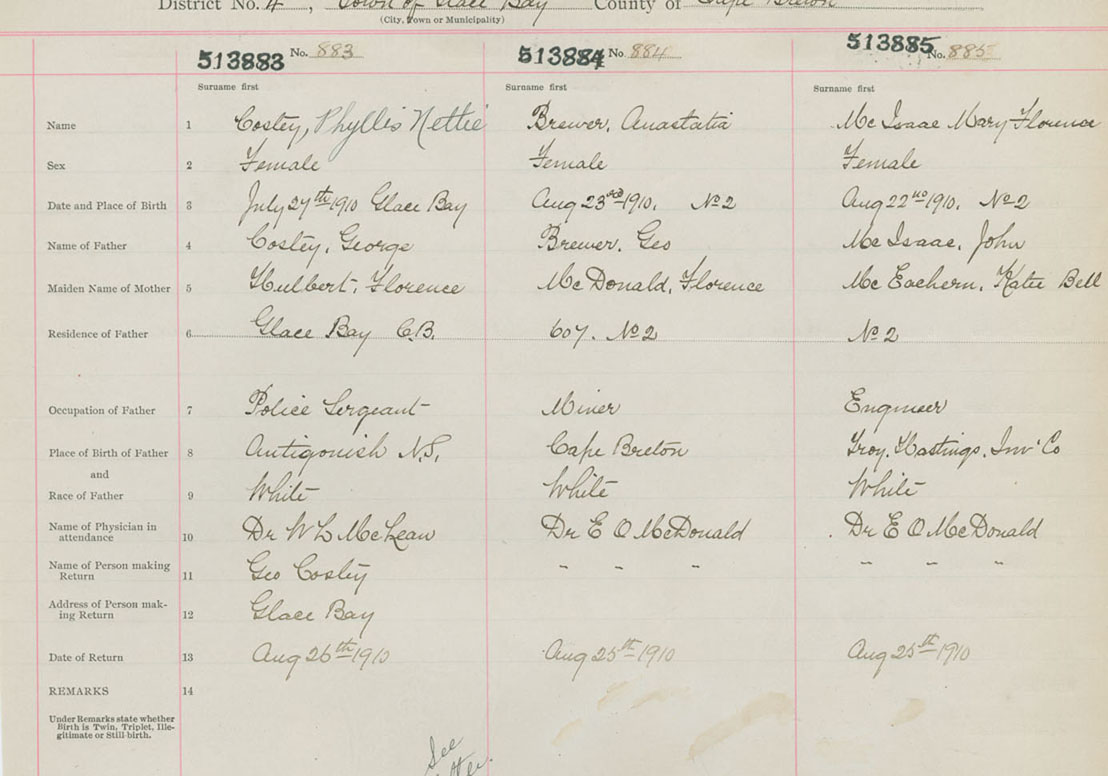 District No. 4, Town of Glace Bay County of Cape Breton
(City, Town or Municipality)
513883 No. 883 513884 No. 884 513885 No. 885
Surname first Surname first Surname first
Name 1 Costey, Phyllis Nettie Brewer, Anastatia Mc Isaac Mary Florence
Sex 2 Female Female Female
Date and Place of Birth 3 July 27th 1910 Glace Bay Aug 23rd 1910. No 2 Aug 22nd 1910. No 2
Name of Father 4 Costey, George Brewer, Geo Mc Isaac, John
Maiden Name of Mother 5 Hulbert, Florence McDonald, Florence Mc Eachern, Katie Bell
Residence of Father 6 Glace Bay C.B. 607. No 2 No 2
Occupation of Father 7 Police Sergeant Miner Engineer
Place of Birth of Father 8 Antigonish N.S. Cape Breton Troy. Hastings. Inv Co
and
Race of Father 9 White White White
Name of Physician in
attendance 10 Dr W L McLean Dr E O McDonald Dr E O McDonald
Name of Person making
Return 11 Geo Costey " " " " " "
Address of Person mak-
ing Return 12 Glace Bay
Date of Return 13 Aug 26th 1910 Aug 25th 1910 Aug 25th 1910
REMARKS 14
Under Remarks state whether
Birth is Twin, Triplet, Ille-
gitimate or Still-birth.
See